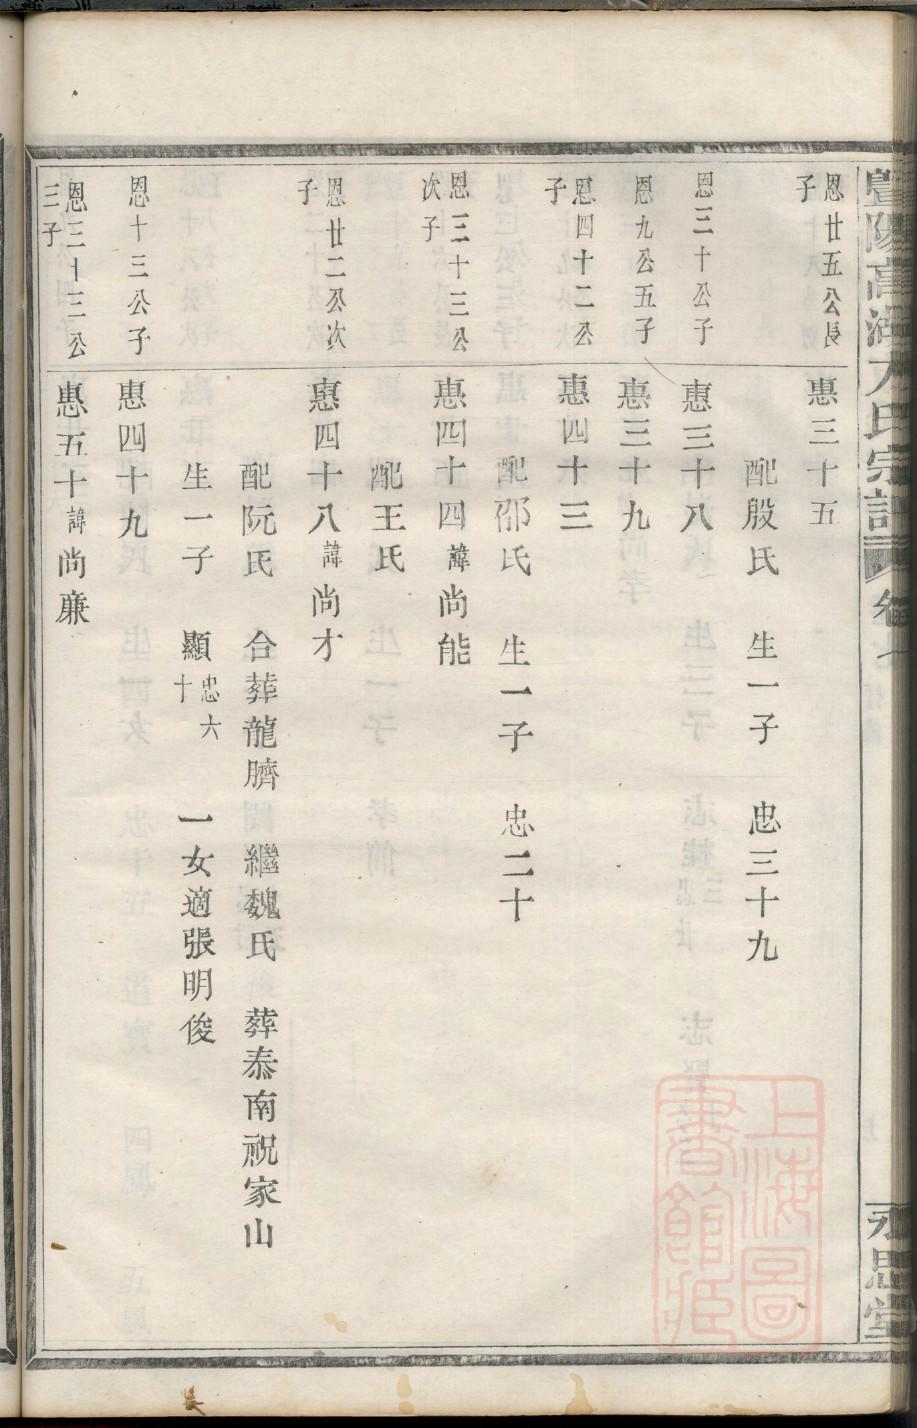 暨陽高湖
氏宗譜
卷七
永思堂
恩廿五公長子
惠三十五
配殷氏 生一子 忠三十九
恩三十公子
惠三十八
恩九公五子
惠三十九
恩四十二公子
惠四十三
配邵氏 生一子 忠二十
恩三十三公次子
惠四十四諱尚能
配王氏
恩廿二公次子
惠四十八諱尚才
配阮氏 合葬龍臍 繼魏氏 葬泰南祝家山
生一子 顯忠六十 一女適張明俊
恩十三公子
惠四十九
恩三十三公三子
惠五十諱尚廉
上海圖書館藏